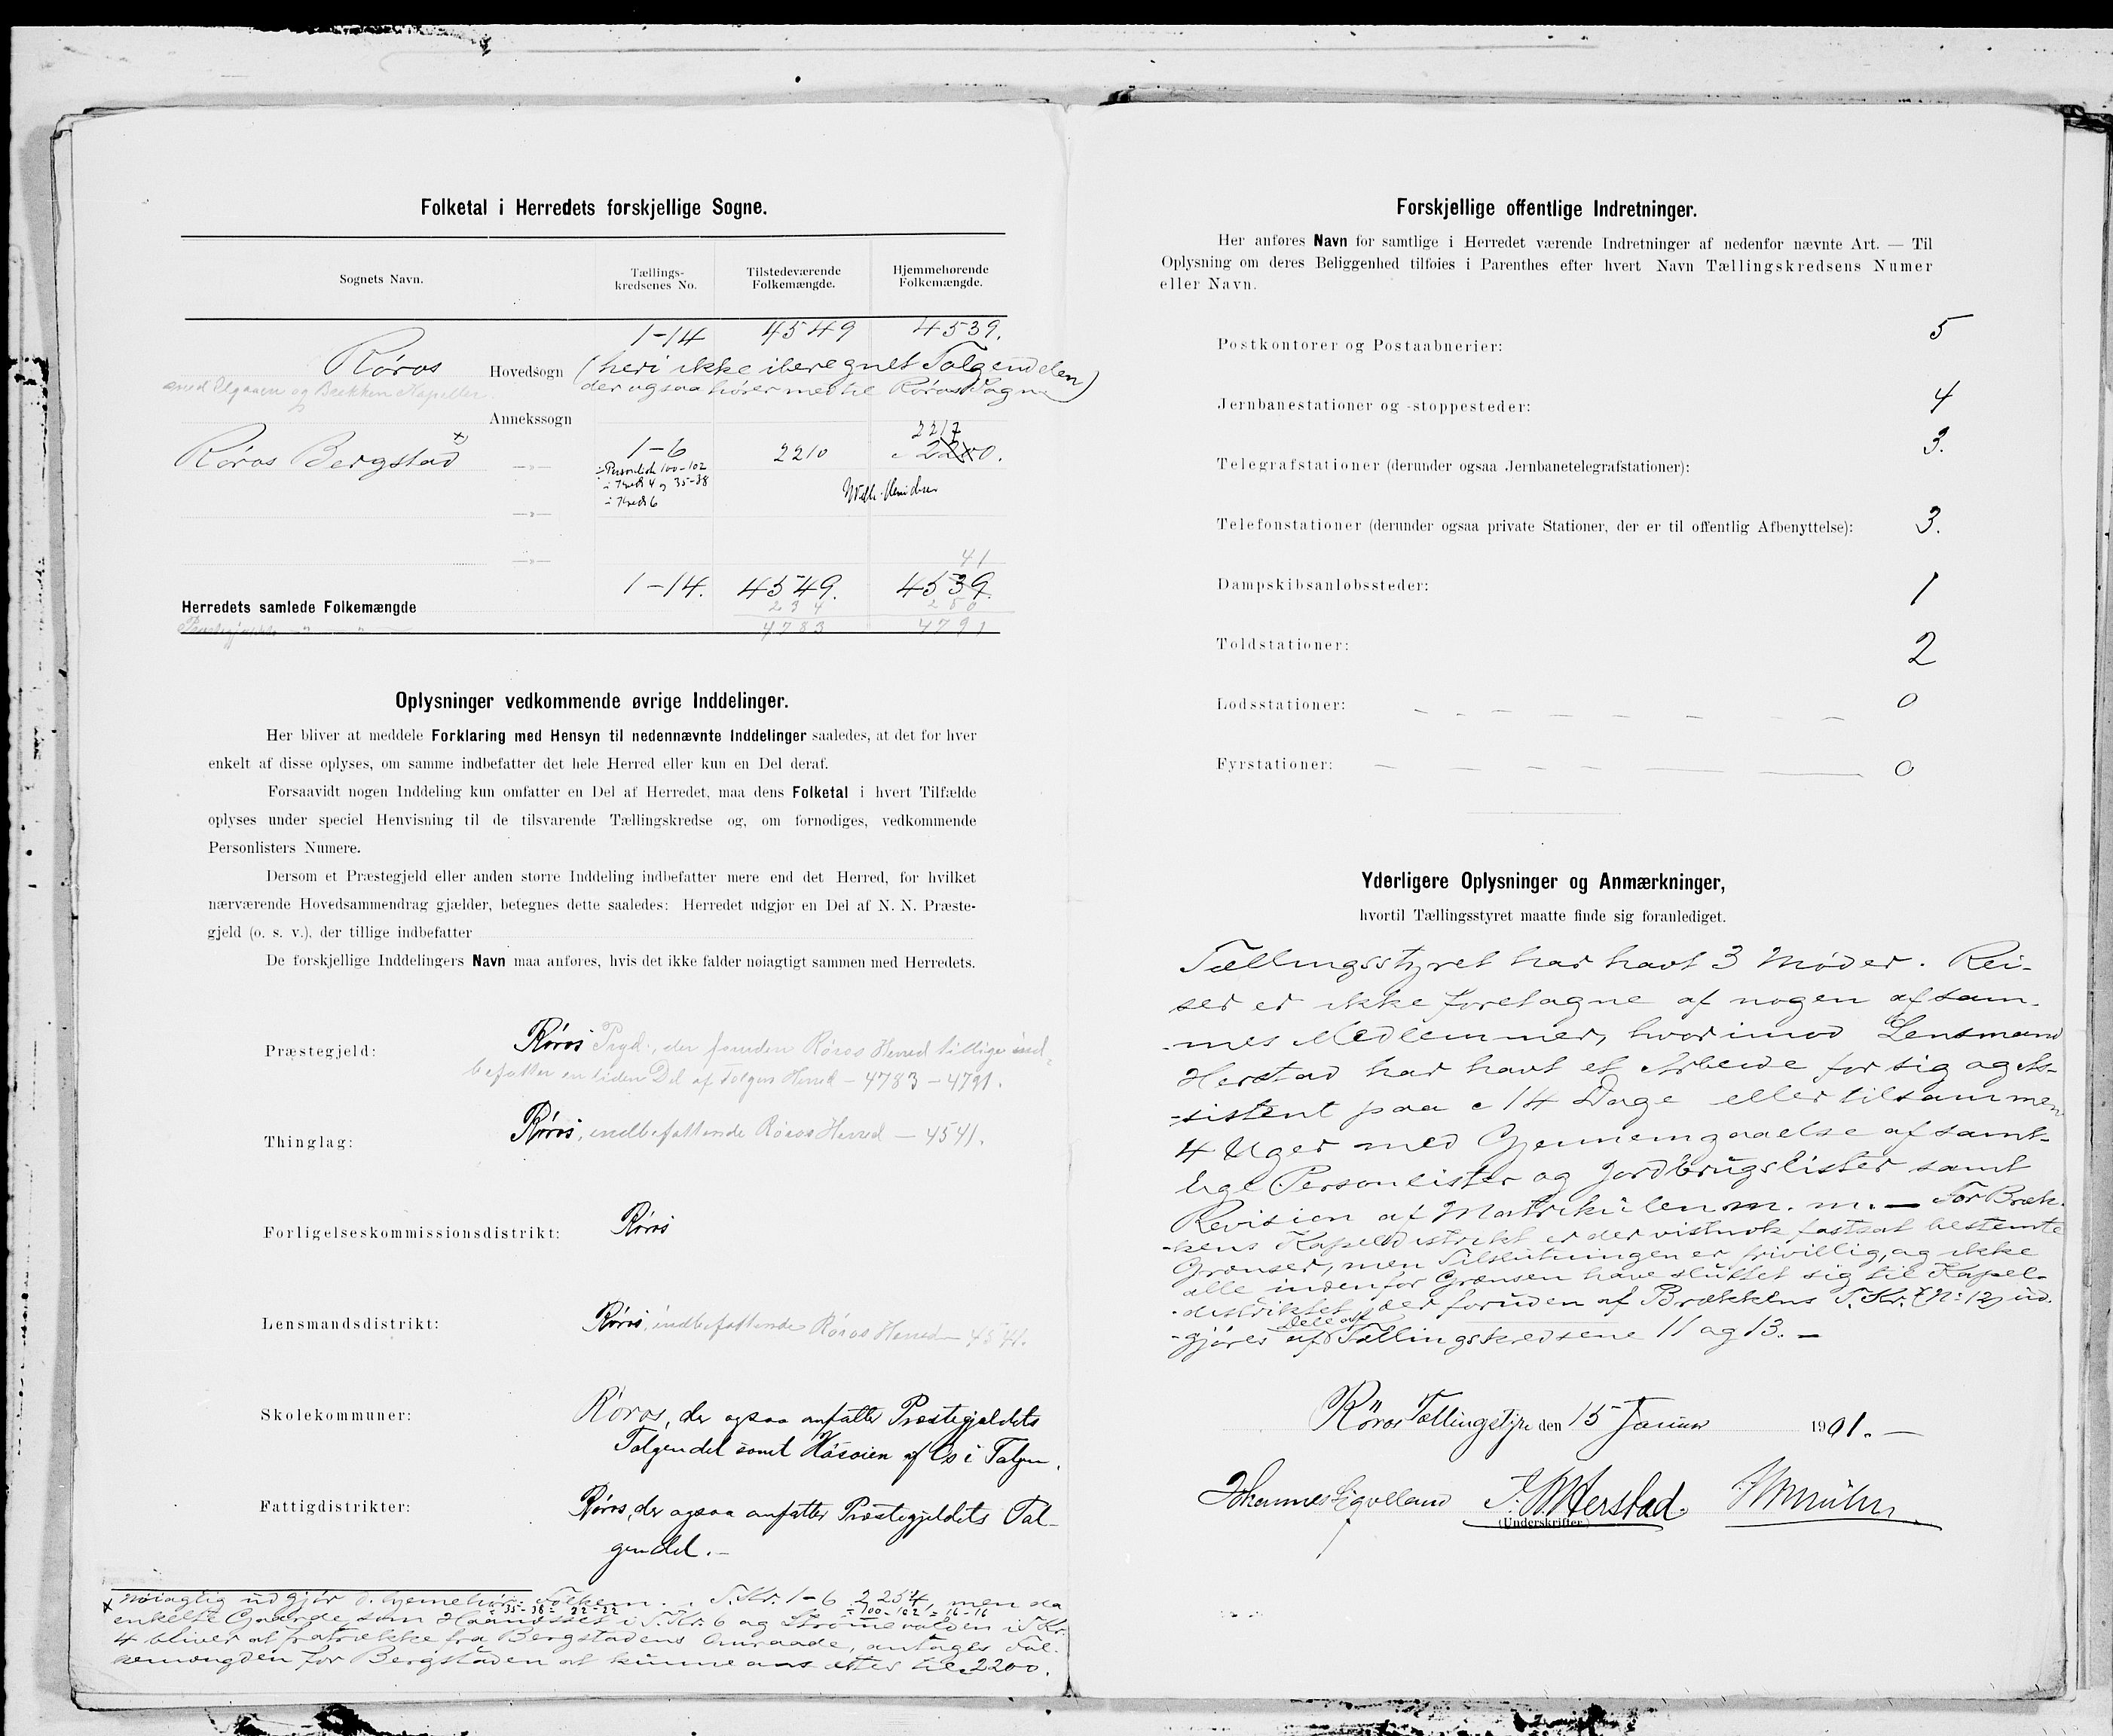 Folketal i Herredets forskjellige Sogne.
Sognets Navn.
Tællings-
kredsenes No.
Tilstedeværende
Folkemængde.
Hjemmehørende
Folkemængde.
1-14 4549 4539.
Røros Hovedsogn (heri ikke iberegnet Tolgendelen
med Brekken Kapeller der ogsaa hører med til Røros Sogn)
Annekssogn
2217
Røros Bergstad x) —»— 1-6 2210 2200.
÷ Personliste 100-102
i Kreds 4 og 35-38
i Kreds 6
—»—
—»—
41
Herredets samlede Folkemængde 1-14. 4549. 4539.
234 250
Præstegjeldets —„— —„— 4783 4791
Oplysninger vedkommende øvrige Inddelinger.
Her bliver at meddele Forklaring med Hensyn til nedennævnte Inddelinger saaledes, at det for hver
enkelt af disse oplyses, om samme indbefatter det hele Herred eller kun en Del deraf.
Forsaavidt nogen Inddeling kun omfatter en Del af Herredet, maa dens Folketal i hvert Tilfælde
oplyses under speciel Henvisning til de tilsvarende Tællingskredse og, om fornødiges, vedkommende
Personlisters Numere.
Dersom et Præstegjeld eller anden større Inddeling indbefatter mere end det Herred, for hvilket
nærværende Hovedsammendrag gjælder, betegnes dette saaledes: Herredet udgjør en Del af N. N. Præste-
gjeld (o. s. v.), der tillige indbefatter
De forskjellige Inddelingers Navn maa anføres, hvis det ikke falder nøiagtigt sammen med Herredets.
Præstegjeld: Røros Prgd., der foruden Røros Herred tillige ind-
befatter en liden Del af Tolgens Herred - 4783 - 4791.
Thinglag: Røros, indbefattende Røros Herred — 4541.
Forligelseskommissionsdistrikt: Røros
Lensmandsdistrikt: Røros, indbefattende Røros Herred — 4541.
Skolekommuner: Røros, der ogsaa omfatter Præstegjeldets
Tolgendel samt Høsøien af Os i Tolgen.
Fattigdistrikter: Røros, der ogsaa omfatter Præstegjeldets Tol-
gendel.—
x nøiagtig udgjør d. hjemmehør. Folkem. i T.Kr. 1-6 2254, men da
÷ 35-38 = 22-22 ÷ 100-102 = 16-16
enkelte Gaarde, som i T.Kr. 6 og i T.Kr.
4 bliver at fratrække fra Bergstadens Omraade, antages Fol-
kemængden for Bergstaden at kunne ansættes til 2200.
Forskjellige offentlige Indretninger.
Her anføres Navn for samtlige i Herredet værende Indretninger af nedenfor nævnte Art. — Til
Oplysning om deres Beliggenhed tilføies i Parenthes efter hvert Navn Tællingskredsens Numer
eller Navn.
Postkontorer og Postaabnerier: 5
Jernbanestationer og -stoppesteder: 4
Telegrafstationer (derunder ogsaa Jernbanetelegrafstationer): 3.
Telefonstationer (derunder ogsaa private Stationer, der er til offentlig Afbenyttelse): 3.
Dampskibsanløbssteder: 1
Toldstationer: 2
Lodsstationer: 0
Fyrstationer: 0
Yderligere Oplysninger og Anmærkninger,
hvortil Tællingsstyret maatte finde sig foranlediget.
Tællingsstyret har havt 3 Møder. Rei-
ser er ikke foretagne af nogen af sam-
-mes Medlemmer, hvorimod Lensmand
Herstad har havt et Arbeide for sig og As-
-sistent paa c 14 Dage eller tilsammen
4 Uger med Gjennemgaaelse af samt-
lige Personlister og Jordbrugslister samt
Revision af Matrikülen m. m. — For Bræk-
-kens Kapeldistrikt er der vistnok fastsat bestemte
Grænser, men Tilslutningen er frivillig, og ikke
alle indenfor Grænsen have sluttet sig til Kapel-
-distriktet, der foruden af Brækkens T.Kr. (No 12) ud-
Dele af
-gjøres af Tællingskredsene 11 og 13. —
Røros Tællingsstyre den 15 Januar 1901. —
Johannes J. Herstad
(Underskrifter.)